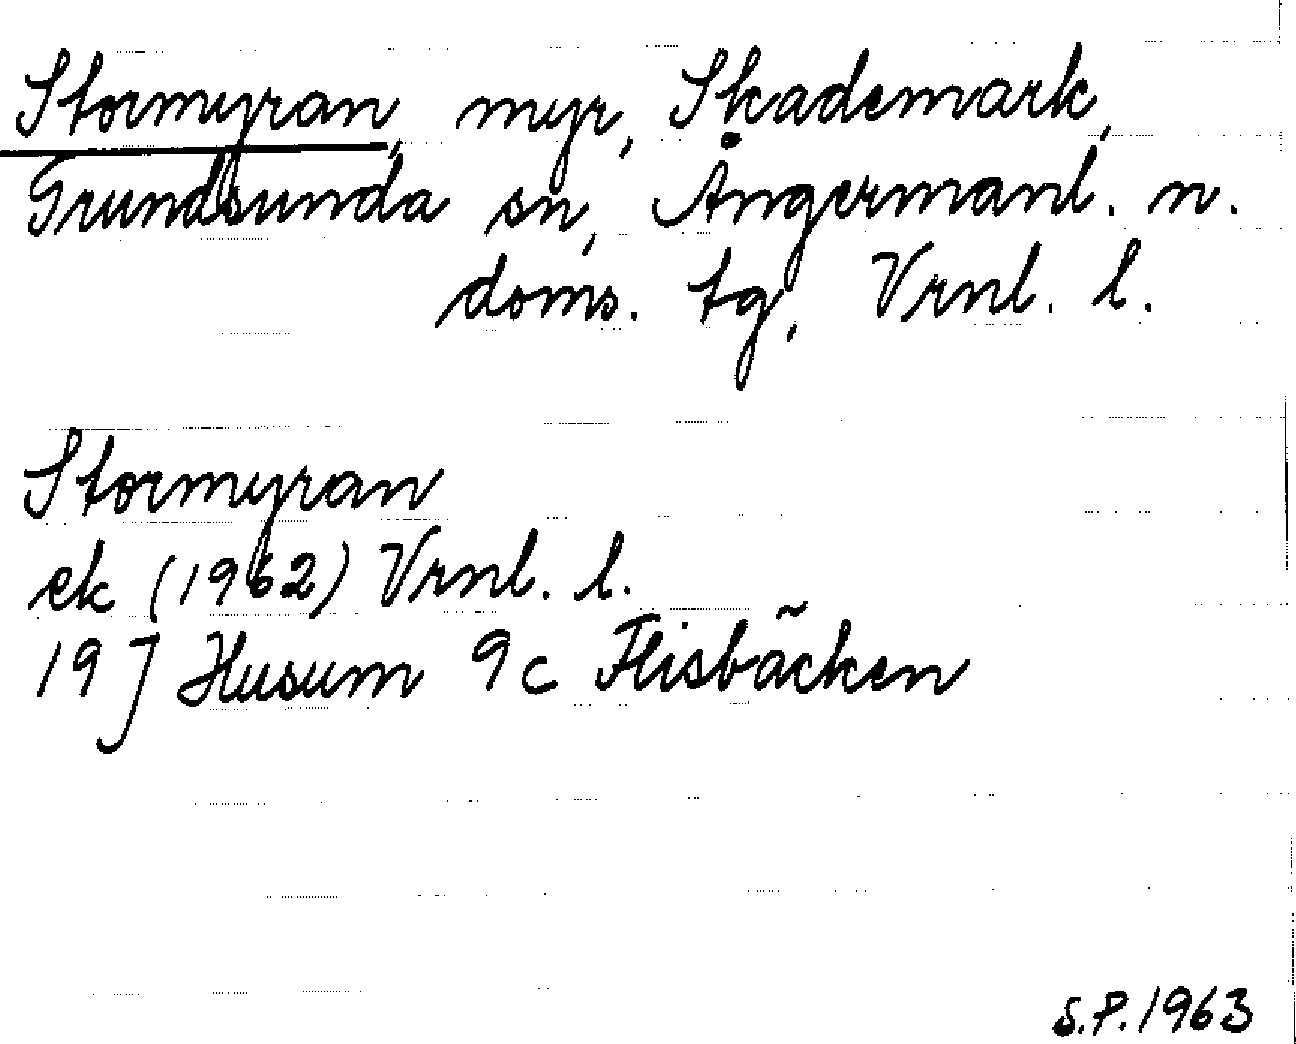 Stormyran, myr, Skademark,
Grundsunda sn, Ångermanl. n.
doms. tg, Vrnl. l.
Stormyran
ek (1962) Vrnl. l.
19 J Husum 9c Flisbäcken
S.P. 1963